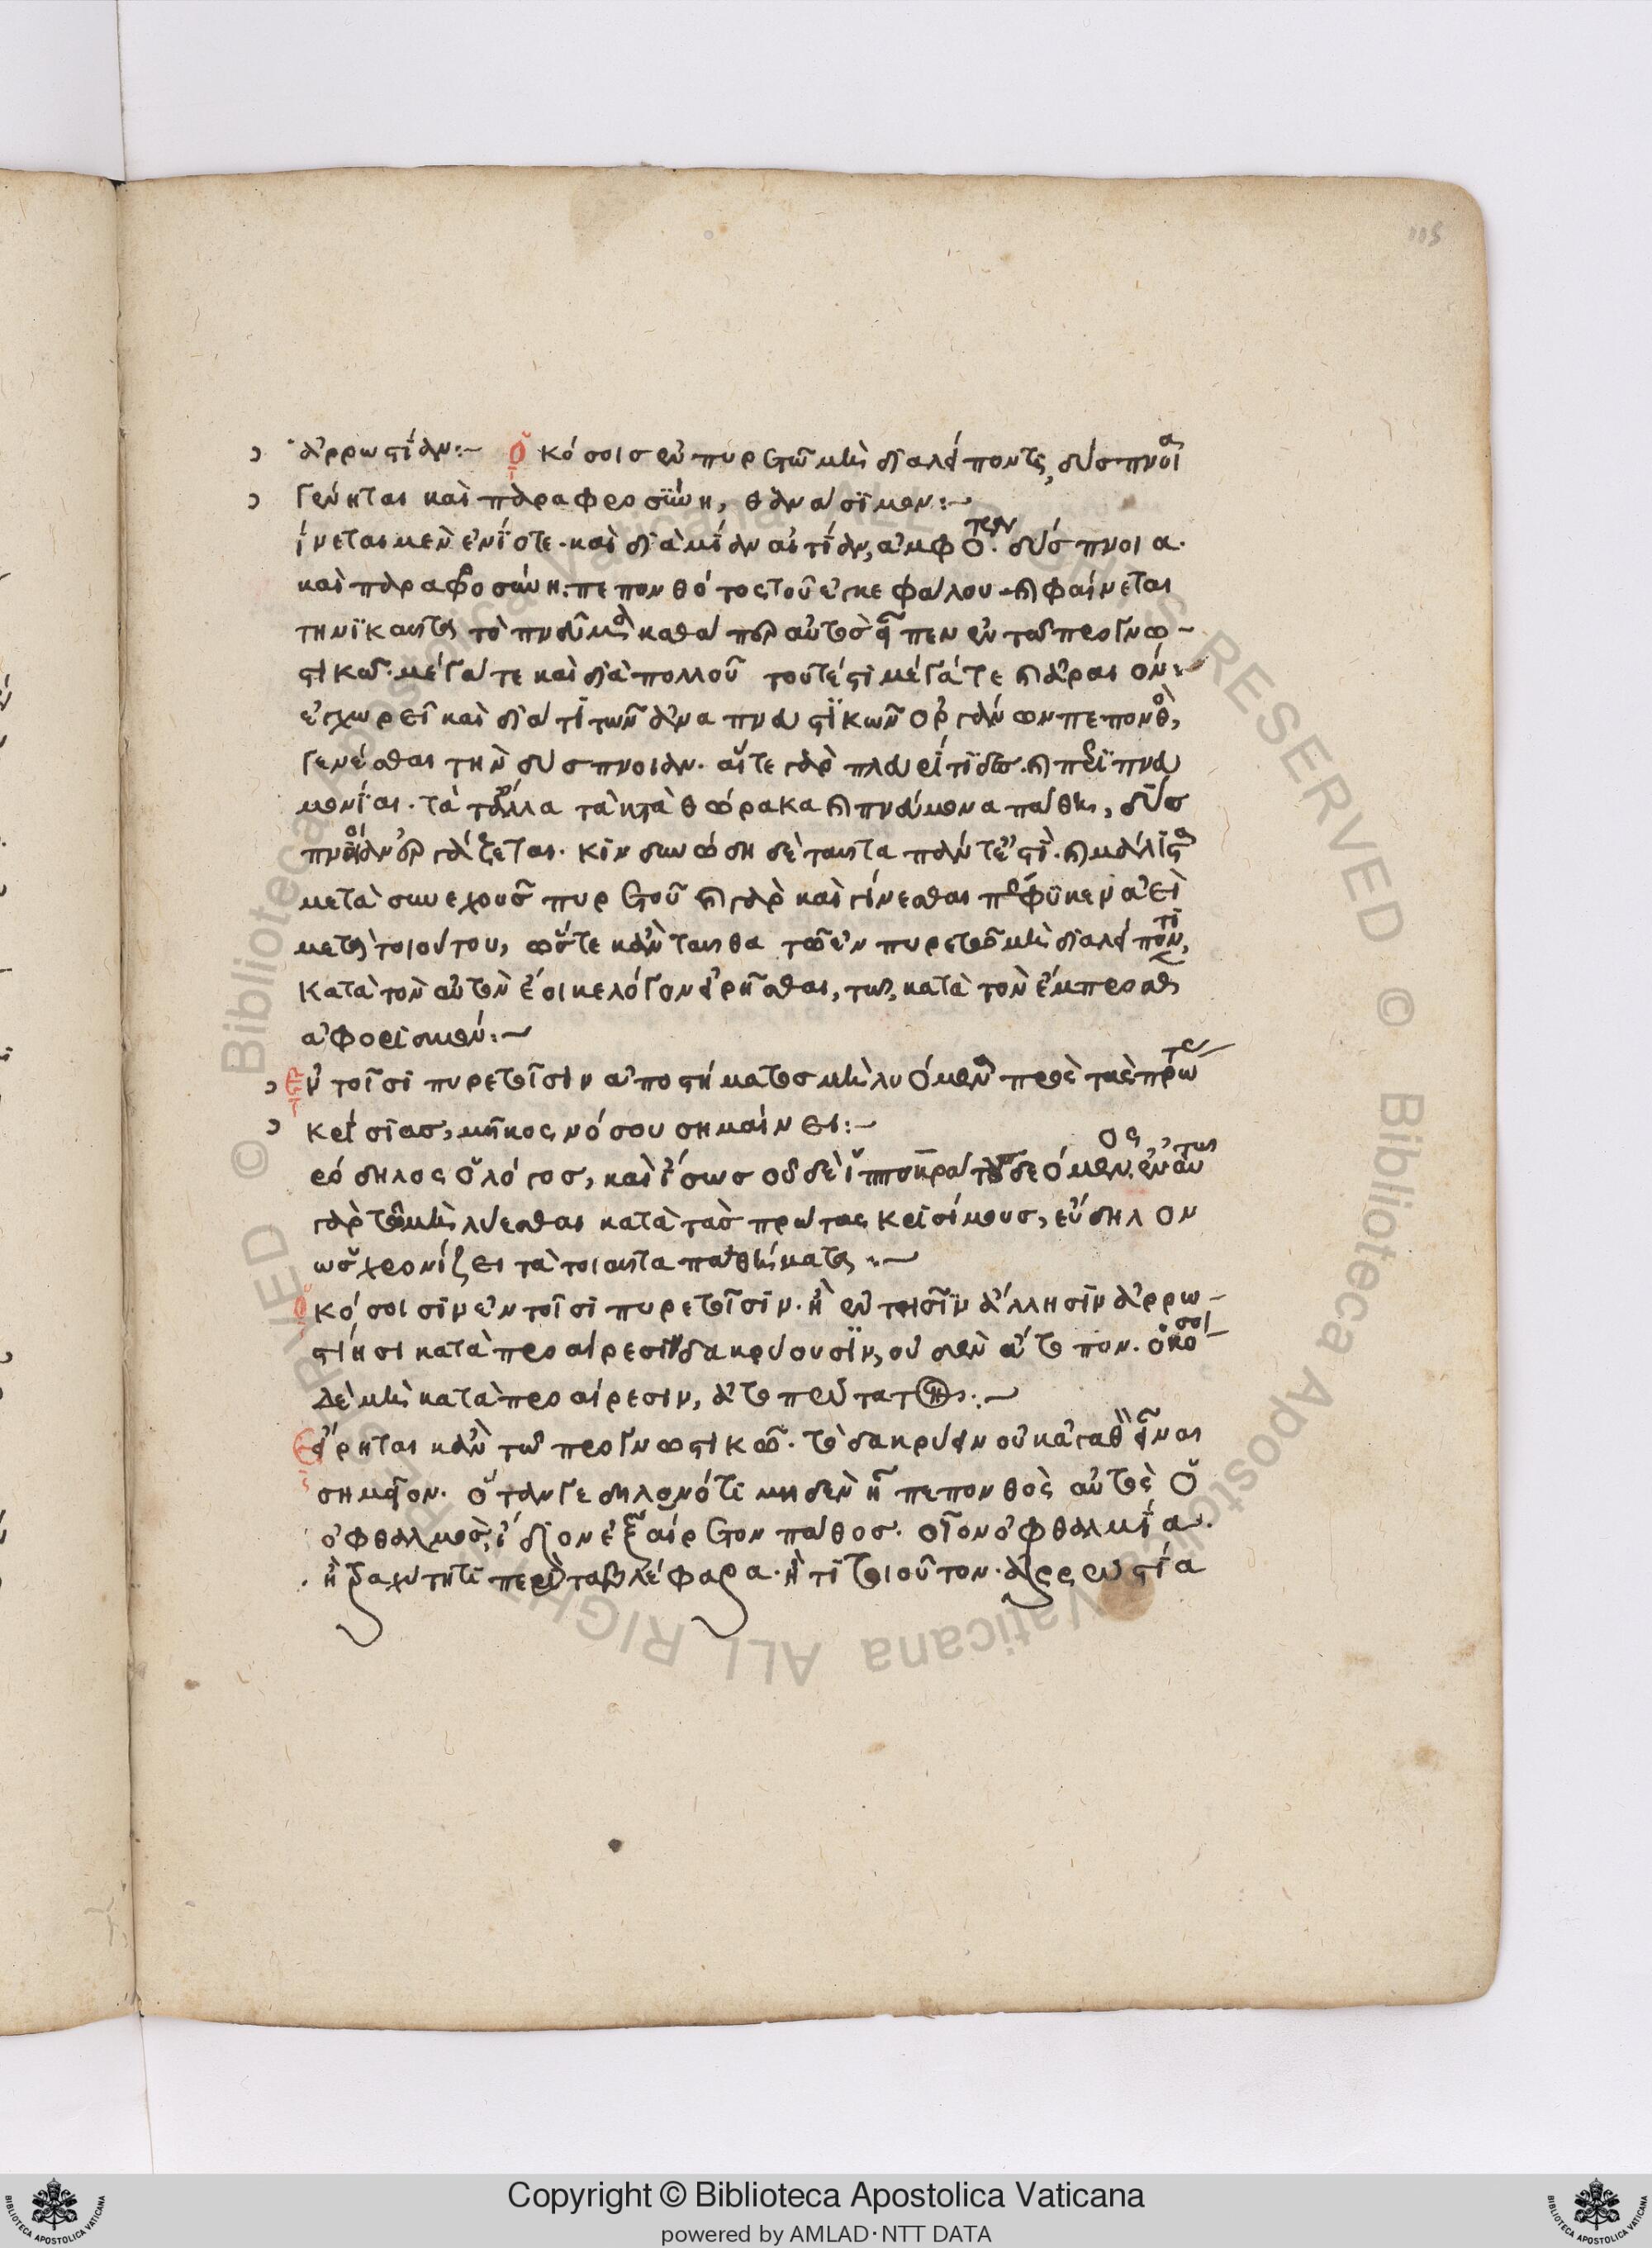 115
ἀρρωστίαν:~ Ὁκόσοισ ἐν πυρετῶ μὴ διαλείποντι, δύσπνοια
γένηται καὶ παραφροσύνη, θανάσιμον:~
ίνεται μὲν ἐνίοτε· καὶ διὰ μίαν αἰτίαν, ἀμφότερα· δύσπνοια·
καὶ παραφροσύνη· πεπονθότος τοῦ ἐγκεφάλου· καὶ φαίνεται
τηνικαῦτα τὸ πνεῦμα καθάπερ αὐτὸσ εἶπεν ἐν τῶ προγνω-
στικῶ· μέγα τε καὶ διὰ πολλοῦ τουτέστι μέγα τε καὶ ἀραιόν:
ἐγχωρεῖ καὶ διά τι τῶν ἀναπνευστικῶν ὀργάνων πεπονθὸς,
γενέσθαι τὴν δύσπνοιαν· αἵ τε γὰρ πλευρίτιδεσ· καὶ περιπνευ
μονίαι· τά τ' ἄλλα τὰ κατὰ θώρακα καὶ πνεύμονα πάθη, δύσ
πνοιαν ἐργάζεται· κινδυνώδη δὲ ταῦτα πάντ' ἐστὶ· καὶ μάλιστα
μετὰ συνεχοῦσ πυρετοῦ καὶ γὰρ καὶ γίνεσθαι πέφυκεν ἀεὶ
μετὰ τοιούτου, ὥστε κἀνταῦθα τῶ ἐν πυρετῶ μὴ διαλείποντι,
κατὰ τὸν αὐτὸν ἔοικε λόγον εἰρῆσθαι, τῶ, κατὰ τὸν ἔμπροσθεν
ἀφορισμόν:~
Ἐν τοῖσι πυρετοῖσιν ἀποστήματα μὴ λυόμενα πρὸς τὰς πρώτας
κρίσιασ, μῆκος νόσου σημαίνει:~
ρόδηλος ὁ λόγοσ, καὶ ἴσωσ οὐδὲ ἱπποκράτους δεόμενος. ἐν αὐτῶ
γὰρ τῶ μὴ λύεσθαι κατὰ τὰσ πρώτας κρισίμουσ, εὔδηλον
ὡσ χρονίζει τὰ τοιαῦτα παθήματα:~
Ὁκόσοισιν ἐν τοῖσι πυρετοῖσιν· ἢ ἐν τῆισιν ἄλλησιν ἀρρω-
στίησι κατὰ προαίρεσιν δακρύουσιν, οὐδὲν ἄτοπον· ὁκόσοι
δὲ μὴ κατὰ προαίρεσιν, ἀτοπώτατον:~
Εἴρηται κἀν τῶ προγνωστικῶ· τὸ δακρύειν οὐκ ἀγαθὸν εἶναι
σημεῖον· ὅταν γε δηλονότι μηδὲν ἦ πεπονθὸς αὐτὸς ὁ
ὀφθαλμὸσ, ἴδιον ἐξαίρετον πάθοσ· οἷον ὀφθαλμία·
ἢ τραχύτητι περὶ τὰ βλέφαρα· ἤ τι τοιοῦτον· ἀρρωστία